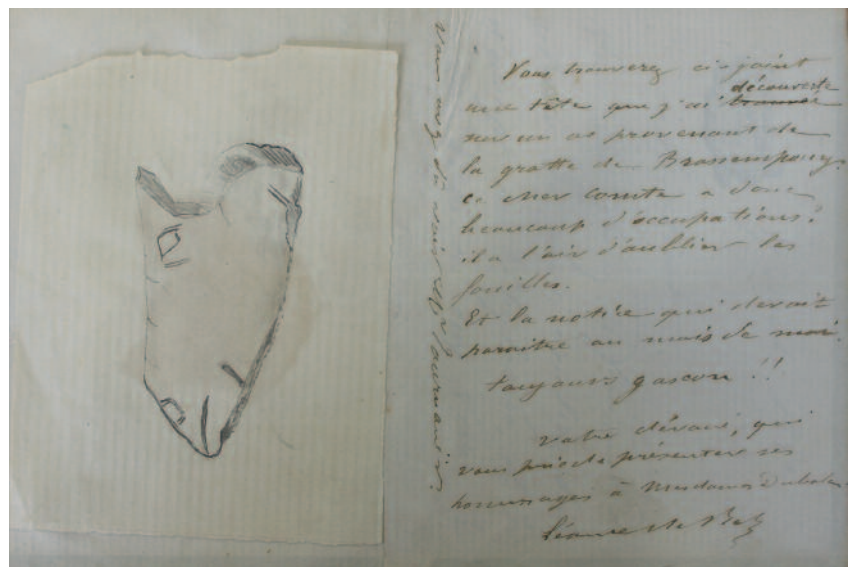 Vous trouverez ci-joint
découverte
une tête que j'ai trouvée
sur un os provenant de
la grotte de Brassempouy.
ce cher comte a donc
beaucoup d'occupations!
il a l'air d'oublier les
fouilles.
Et la notice qui devait
paraître au mois de mai.
toujours gascon !!
votre dévoué, qui
vous prie de présenter ses
hommages à Madame Dubalen